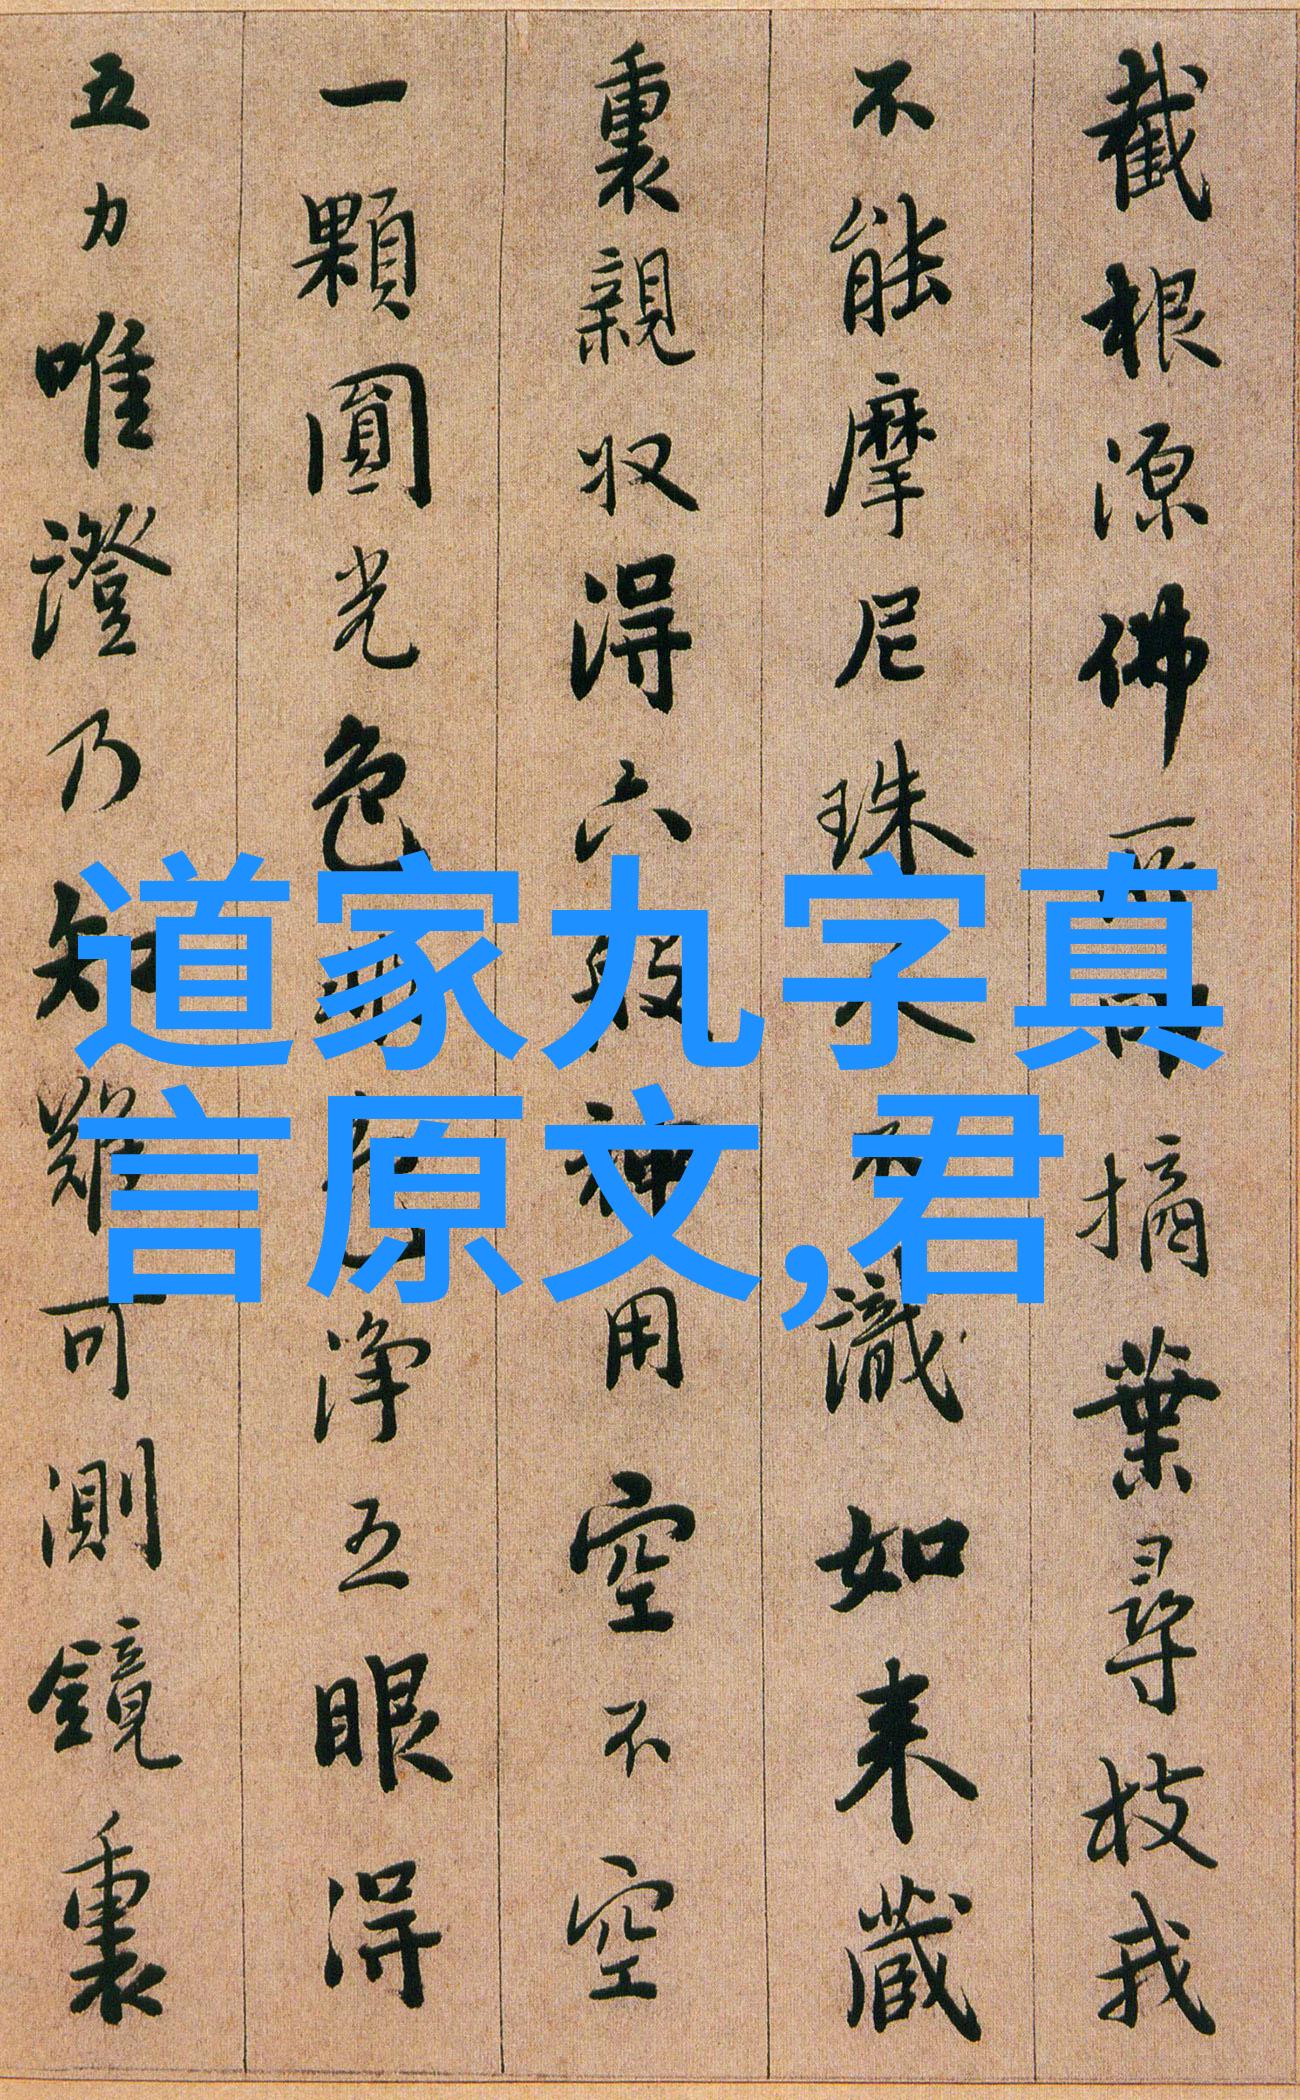 截根源佛所印摘葉尋枝我
不能摩尼珠人不識如来藏
裏親収得六般神用空不空
一顆圓光色非色淨五眼得
五力唯證乃知難可測鏡裏
道家九字真
言原文,君